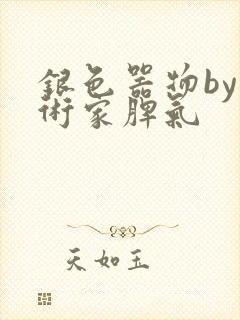 銀色器物by
術家脾氣
天如玉